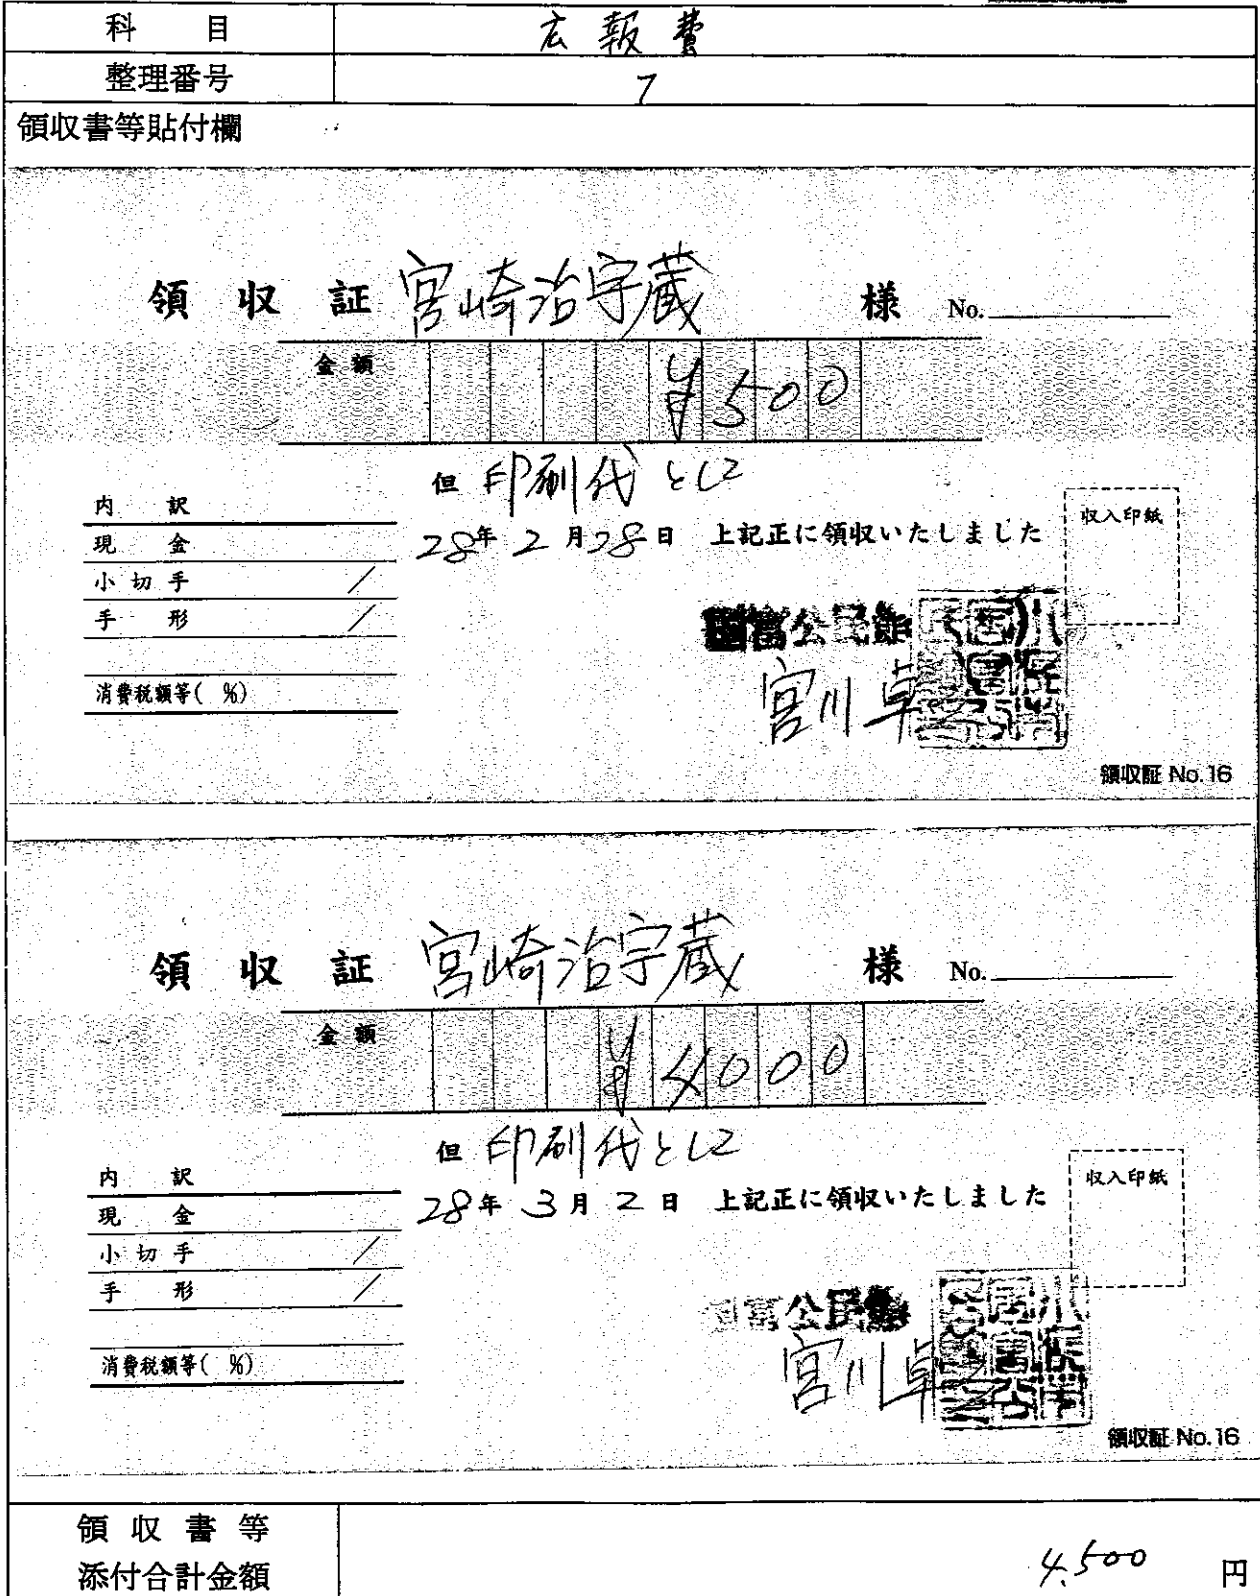 科 目 広報費
整理番号 7
領収書等貼付欄
領 収 証 宮崎治宇蔵 様 No.
金額 ¥500
但 印刷代として
内 訳
28年 2月28日 上記正に領収いたしました
収入印紙
現 金
小切手 /
手 形 /
国富公民館
宮川卓
消費税額等( %)
領収証 No.16
領 収 証 宮崎治宇蔵 様 No.
金額 ¥4000
但 印刷代として
内 訳
28年 3月 2日 上記正に領収いたしました
収入印紙
現 金
小切手 /
手 形 /
国富公民館
宮川卓
消費税額等( %)
領収証 No.16
領収書等
添付合計金額 4,500 円